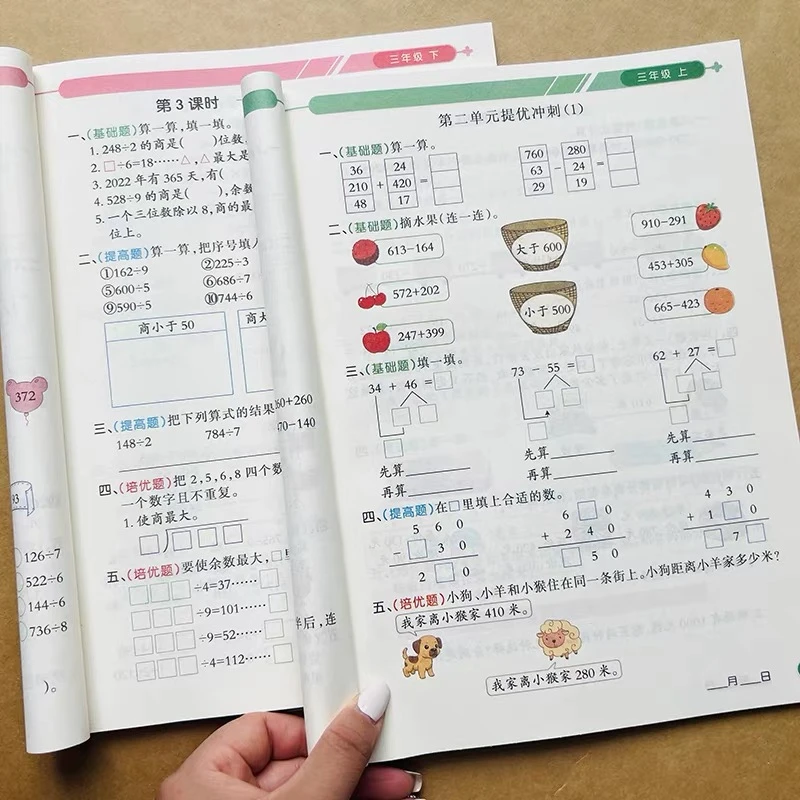 三年级 下
第 3 课时
一、(基础题)算一算,填一填。
1. 248÷2 的商是(　　)位数
2. □÷6=18……△,△最大是
3. 2022 年有 365 天,有(
4. 528÷9 的商是(　　),余数
5. 一个三位数除以 8,商的最
位上。
二、(提高题)算一算,把序号填入
①162÷9　②225÷3
⑤600÷5　⑥686÷7
⑨590÷5　⑩744÷6
商小于 50
商大
三、(提高题)把下列算式的结果
148÷2　784÷7
四、(培优题)把 2,5,6,8 四个数
一个数字且不重复。
1. 使商最大。
□)□□□
五、(培优题)要使余数最大,□里
□□□÷4=37……□
□□□÷9=101……□
□□□÷9=52……□
□□□÷4=112……□
372
93
126÷7
522÷6
144÷6
736÷8
)。
60+260
70-140
后,连
三年级 上
第二单元提优冲刺(1)
一、(基础题)算一算。
36　24　760　280
210 + 420 =　63 - 24 =
48　17　29　19
二、(基础题)摘水果(连一连)。
613-164　大于 600　910-291
572+202　453+305
247+399　小于 500　665-423
三、(基础题)填一填。
34 + 46 = □　73 - 55 = □　62 + 27 = □
先算　先算　先算
再算　再算　再算
四、(提高题)在□里填上合适的数。
5 6 0　6 □ 0　4 3 0
- □ 3 0　+ 2 4 0　+ 1 □ 0
2 □ 0　□ 5 0　□ 7 □
五、(培优题)小狗、小羊和小猴住在同一条街上。小狗距离小羊家多少米?
我家离小猴家 410 米。
我家离小猴家 280 米。
___月___日